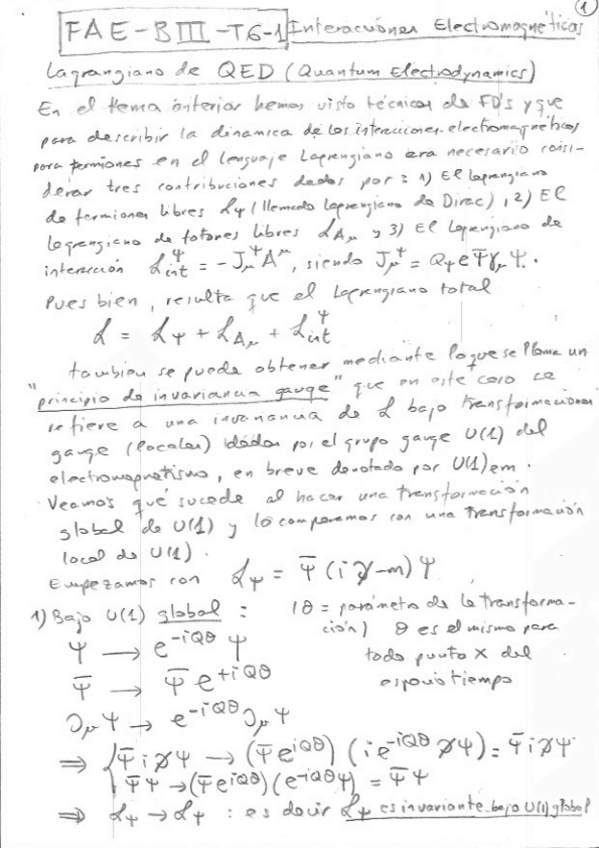 1
FAE-BIII-T6-1 Interacciones Electromagnéticas
Lagrangiano de QED (Quantum Electrodynamics)
En el tema anterior hemos visto técnicas de FD's y que
para describir la dinamica de las interacciones electromagnéticas
para fermiones en el lenguaje Lagrangiano era necesario consi-
derar tres contribuciones dadas por: 1) El Lagrangiano
de fermiones libres ℒψ (llamado Lagrangiano de Dirac), 2) El
Lagrangiano de fotones libres ℒAμ y 3) El Lagrangiano de
interacción ℒint^ψ = -Jμ^ψ A^μ, siendo Jμ^ψ = Qψ e ψ̄ γμ ψ.
Pues bien, resulta que el Lagrangiano total
ℒ = ℒψ + ℒAμ + ℒint^ψ
tambien se puede obtener mediante lo que se llama un
"principio de invariancia gauge" que en este caso se
refiere a una invariancia de ℒ bajo transformaciones
gauge (locales) dadas por el grupo gauge U(1) del
electromagnetismo, en breve denotado por U(1)em.
Veamos qué sucede al hacer una transformación
global de U(1) y lo comparemos con una transformación
local de U(1).
Empezamos con ℒψ = ψ̄ (i∂̸ - m) ψ
1) Bajo U(1) global : (θ = parámetro de la transforma-
ción) θ es el mismo para
todo punto x del
espacio tiempo
ψ → e^{-iQθ} ψ
ψ̄ → ψ̄ e^{+iQθ}
∂μψ → e^{-iQθ} ∂μψ
⇒ { ψ̄ i∂̸ψ → (ψ̄ e^{iQθ}) (i e^{-iQθ} ∂̸ψ) = ψ̄ i∂̸ψ
ψ̄ψ → (ψ̄ e^{iQθ}) (e^{-iQθ} ψ) = ψ̄ψ
⇒ ℒψ → ℒψ : es decir ℒψ es invariante bajo U(1) global